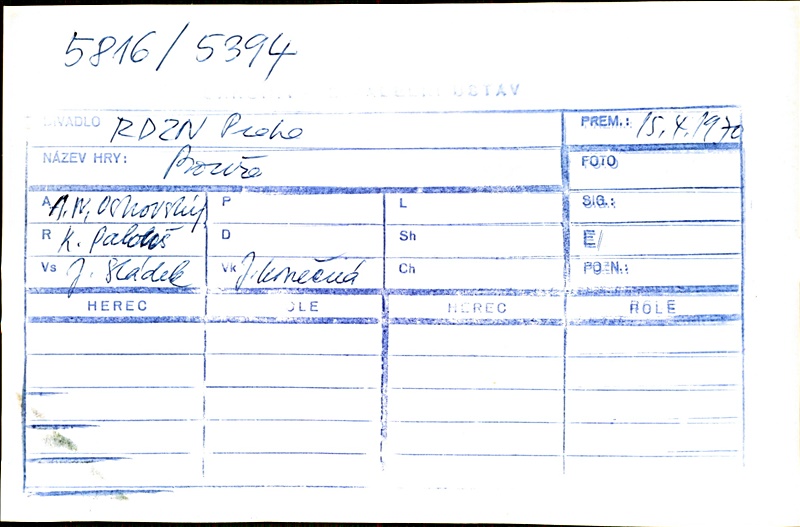 5816/5394
ÚSTAV
DIVADLO RDZN Praha PREM.: 15.4.1970
NÁZEV HRY: Bouře FOTO
A A.N. Ostrovskij P L SIG.:
R K. Palouš D Sh E/
Vs J. Sládek Vk J. Konečná Ch POZN.:
HEREC ROLE HEREC ROLE